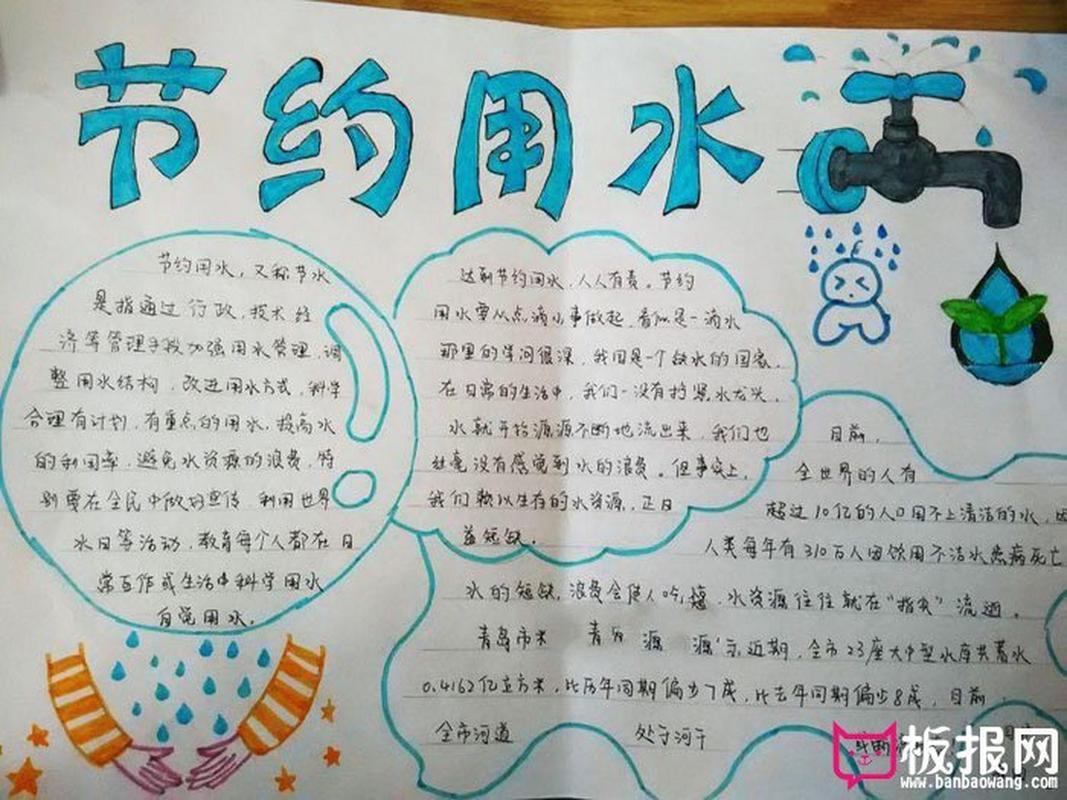 节约用水
节约用水，又称节水
是指通过行政，技术经
济等管理手段加强用水管理，调
整用水结构，改进用水方式，科学
合理有计划，有重点的用水，提高水
的利用率，避免水资源的浪费，特
别要在全民中做好宣传 利用世界
水日等活动，教育每个人都在日
常工作或生活中科学用水
自觉用水。
达到节约用水，人人有责。节约
用水要从点滴小事做起，看似是一滴水
那里的学问很深，我国是一个缺水的国家，
在日常的生活中，我们一没有拧紧水龙头，
水就开始源源不断地流出来，我们也
丝毫没有感觉到水的浪费。但事实上，
我们赖以生存的水资源，正日
益短缺。
目前，
全世界的人有
超过10亿的人口用不上清洁的水，
人类每年有310万人因饮用不洁水患病死亡
水的短缺，浪费会使人吃 水资源往往就在"指尖"流逝。
青岛市 青岛 源 源 示近期，全市23座大中型水库共蓄水
0.4162亿立方米，比历年同期偏少7成，比去年同期偏少8成，目前
全市河道 处于河干
板报网
www.banbaowang.com